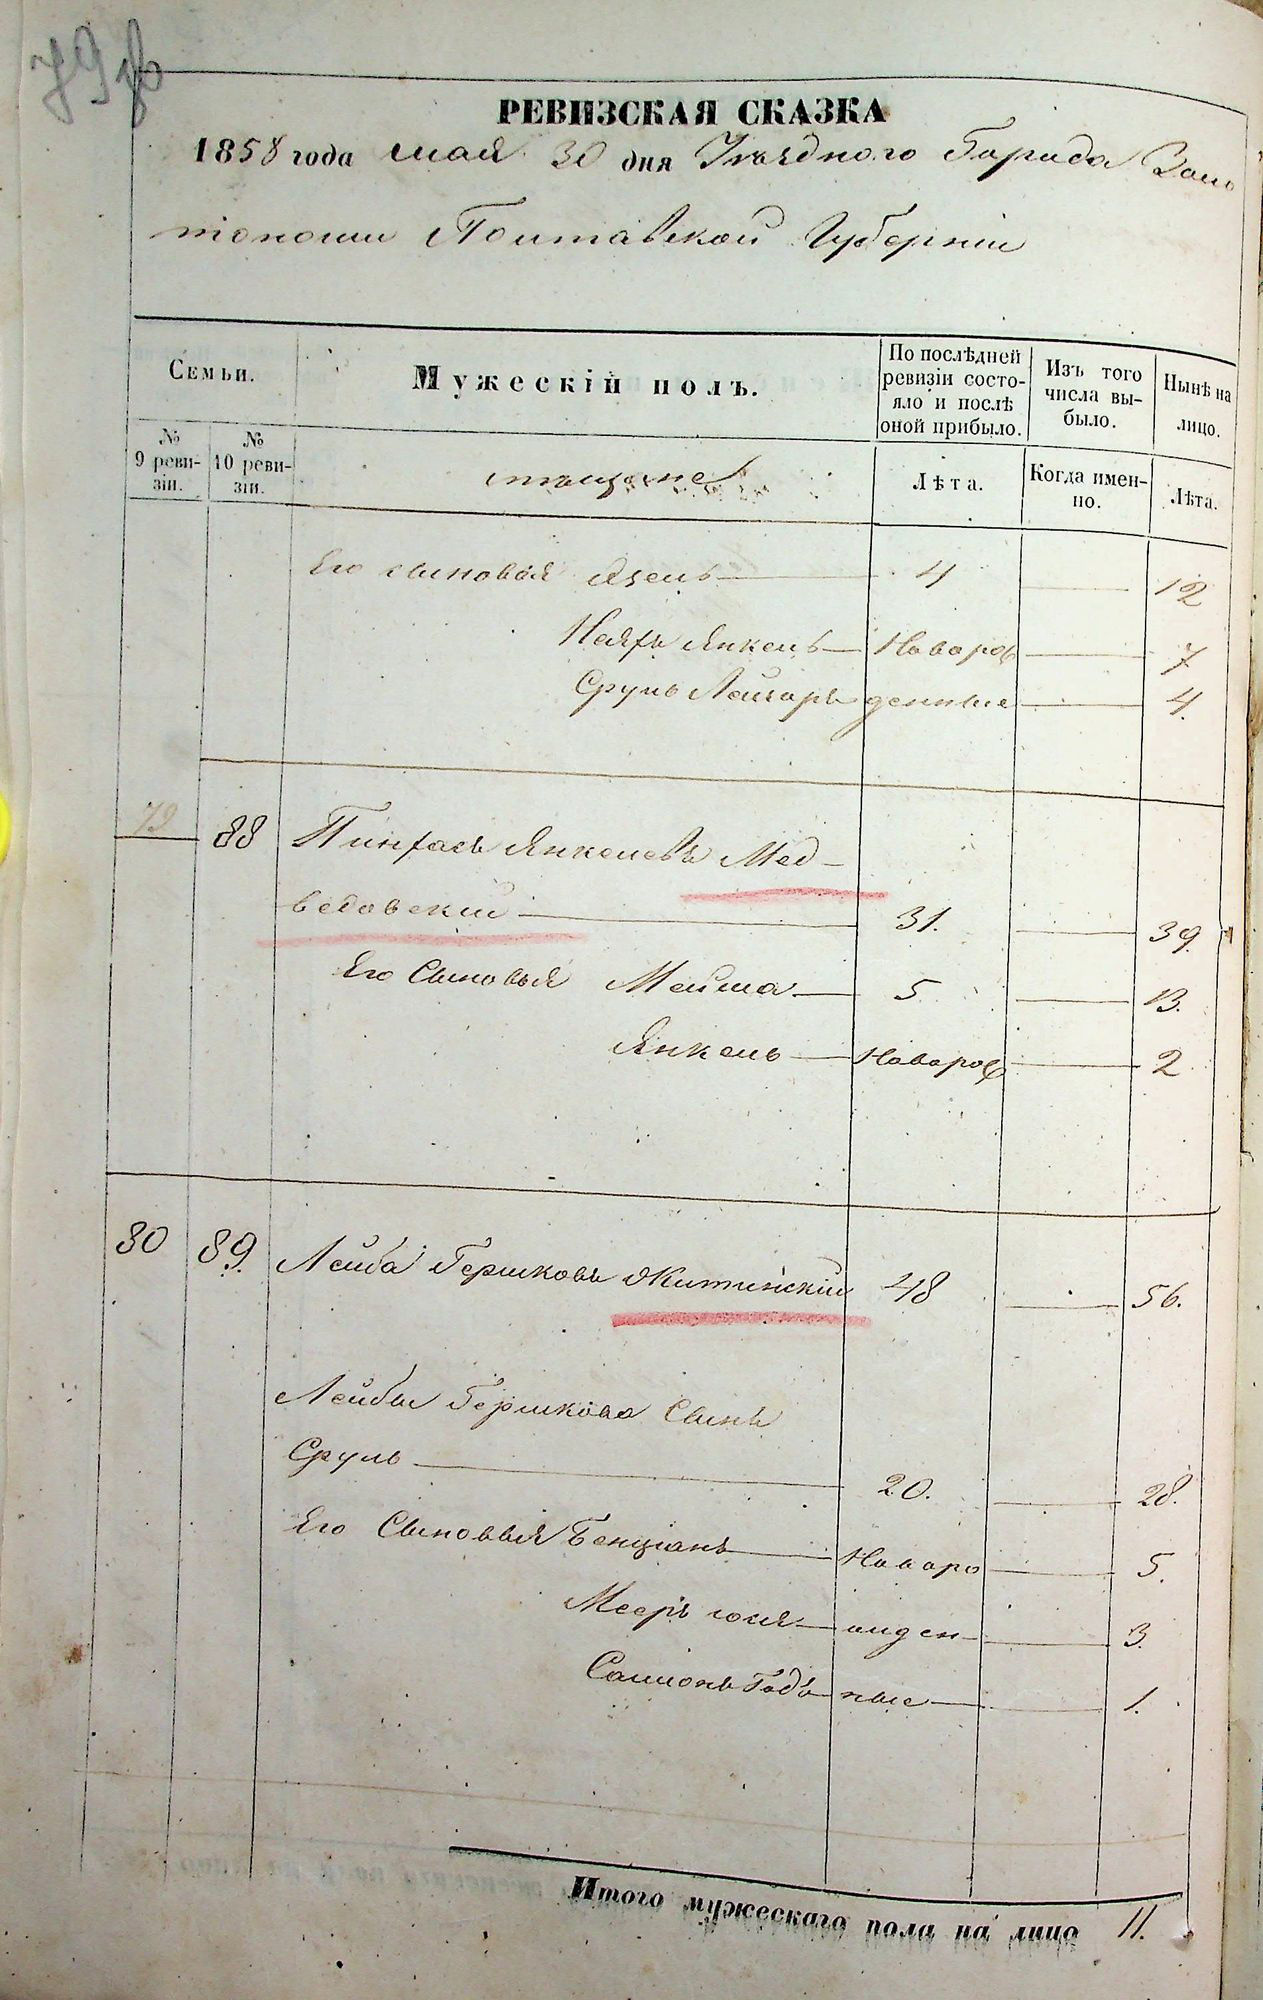 РЕВИЗСКАЯ СКАЗКА
1858 года мая 30 дня Уѣзднаго Города Золо
тоноши Полтавской Губерніи
Семьи.
Мужескій полъ.
По послѣдней ревизіи состояло и послѣ оной прибыло.
Изъ того числа выбыло.
Нынѣ на лицо.
№ 9 ревизіи.
№ 10 ревизіи.
мѣщане
Лѣта.
Когда именно.
Лѣта.
Его сыновья 4 12
Янкель Новорож 7
Сруль Лейзаръ денные 4.
79 88 Пинхасъ Янкелевъ Мед-
ведовскій 31. 39.
Его Сыновья Мейша 5 13.
Янкель Новорож 2
80 89. Лейба Гершковъ Житинскій 48 56.
Лейбы Гершкова Сынъ
Сруль 20. 28.
Его Сыновья Бенціанъ Новоро 5.
Мееръ 3.
ные 1.
Итого мужескаго пола на лицо 11.